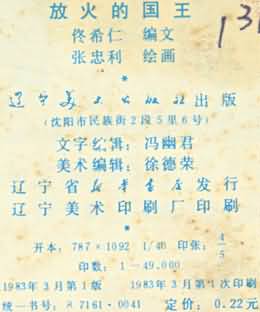 放火的国王
佟希仁 编文
张忠利 绘画
*
辽宁美术出版社出版
(沈阳市民族街2段5里6号)
文字编辑:冯幽君
美术编辑:徐德荣
辽宁省新华书店发行
辽宁美术印刷厂印刷
*
开本:787×1092 1/40 印张:4/5
印数:1—49,000
1983年3月第1版 1983年3月第1次印刷
统一书号:8 7161·0041 定价:0.22元